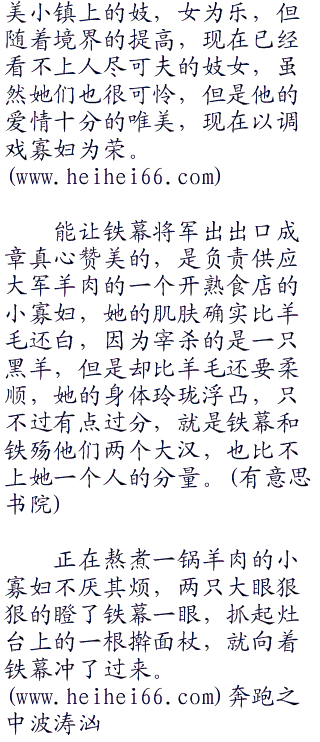 美小镇上的妓，女为乐，但
随着境界的提高，现在已经
看不上人尽可夫的妓女，虽
然她们也很可怜，但是他的
爱情十分的唯美，现在以调
戏寡妇为荣。
(www.heihei66.com)
能让铁幕将军出出口成
章真心赞美的，是负责供应
大军羊肉的一个开熟食店的
小寡妇，她的肌肤确实比羊
毛还白，因为宰杀的是一只
黑羊，但是却比羊毛还要柔
顺，她的身体玲珑浮凸，只
不过有点过分，就是铁幕和
铁殇他们两个大汉，也比不
上她一个人的分量。(有意思
书院)
正在熬煮一锅羊肉的小
寡妇不厌其烦，两只大眼狠
狠的瞪了铁幕一眼，抓起灶
台上的一根擀面杖，就向着
铁幕冲了过来。
(www.heihei66.com)奔跑之
中波涛汹